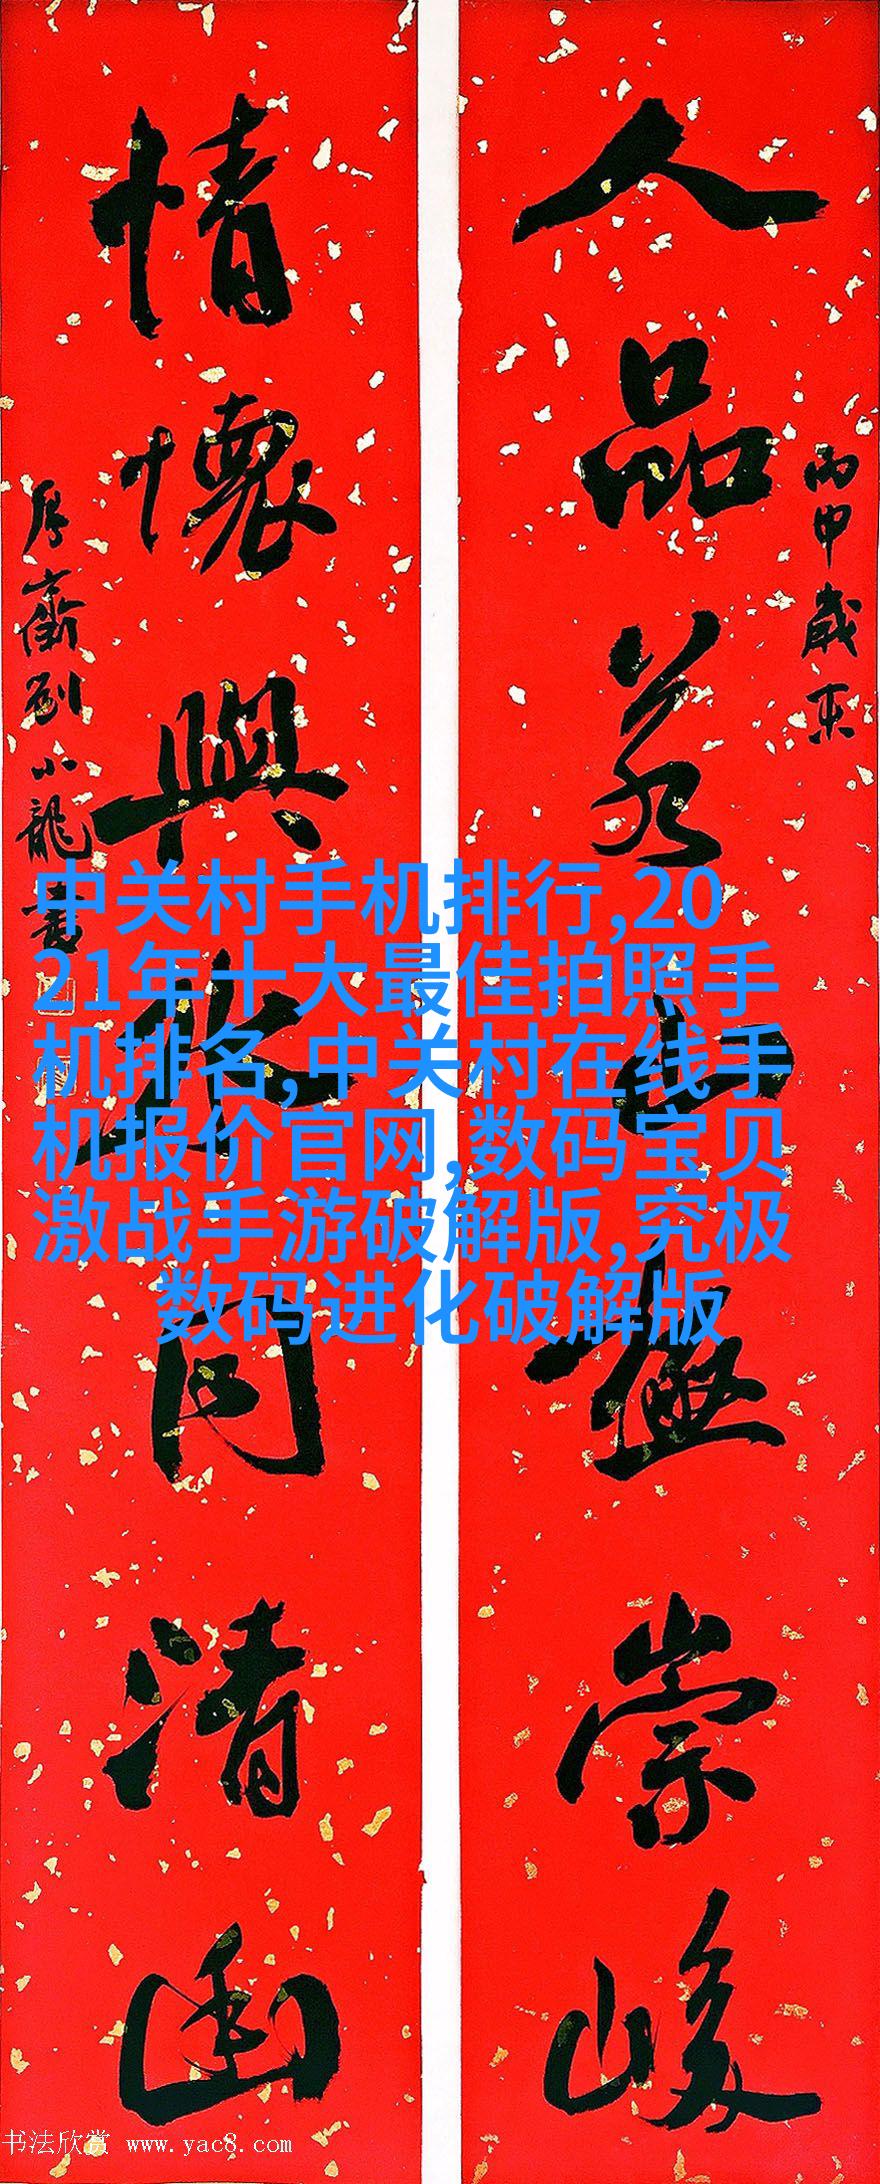 人品若山極崇峻
丙申歲末
情懷與水同清幽
厚齋劉小龍書
中关村手机排行,20
21年十大最佳拍照手
机排名,中关村在线手
机报价官网,数码宝贝
激战手游破解版,究极
数码进化破解版
书法欣赏 www.yac8.com